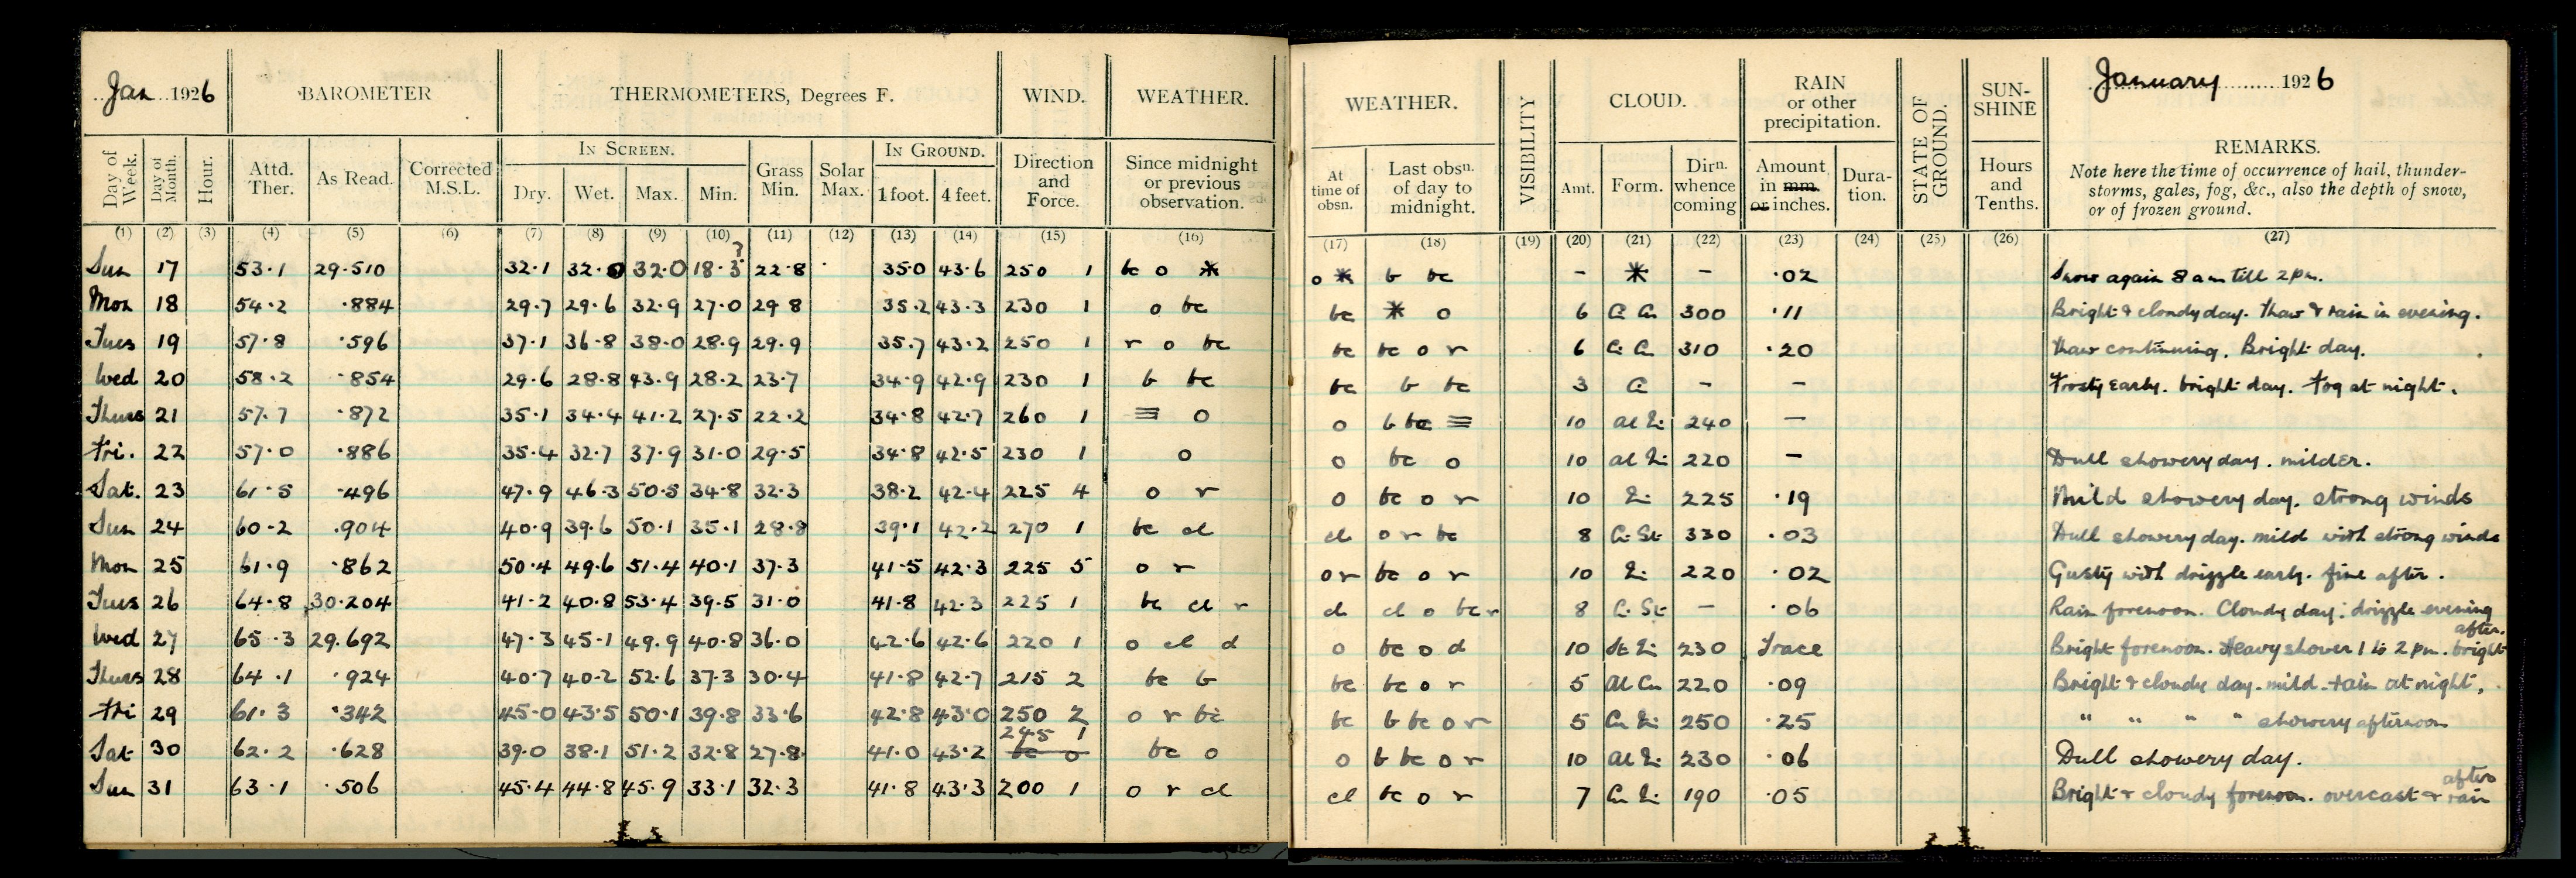 Jan 1926 BAROMETER THERMOMETERS, Degrees F. WIND. WEATHER.
Day of Week. Day of Month. Hour. Attd. Ther. As Read. Corrected M.S.L. IN SCREEN. Dry. Wet. Max. Min. Grass Min. Solar Max. IN GROUND. 1 foot. 4 feet. Direction and Force. Since midnight or previous observation.
(1) (2) (3) (4) (5) (6) (7) (8) (9) (10) (11) (12) (13) (14) (15) (16)
Sun 17 53.1 29.510 32.1 32.0 32.0 18.3 ? 22.8 35.0 43.6 250 1 bc o *
Mon 18 54.2 .884 29.7 29.6 32.9 27.0 29 8 35.2 43.3 230 1 o bc
Tues 19 57.8 .596 37.1 36.8 38.0 28.9 29.9 35.7 43.2 250 1 r o bc
Wed 20 58.2 .854 29.6 28.8 43.9 28.2 23.7 34.9 42.9 230 1 b bc
Thurs 21 57.7 .872 35.1 34.4 41.2 27.5 22.2 34.8 42.7 260 1 ≡ o
Fri. 22 57.0 .886 35.4 32.7 37.9 31.0 29.5 34.8 42.5 230 1 o
Sat. 23 61.5 .496 47.9 46.3 50.5 34.8 32.3 38.2 42.4 225 4 o r
Sun 24 60.2 .904 40.9 39.6 50.1 35.1 28.8 39.1 42.2 270 1 bc cl
Mon 25 61.9 .862 50.4 49.6 51.4 40.1 37.3 41.5 42.3 225 5 o r
Tues 26 64.8 30.204 41.2 40.8 53.4 39.5 31.0 41.8 42.3 225 1 bc cl r
Wed 27 65.3 29.692 47.3 45.1 49.9 40.8 36.0 42.6 42.6 220 1 o cl d
Thurs 28 64.1 .924 40.7 40.2 52.6 37.3 30.4 41.8 42.7 215 2 bc b
Fri 29 61.3 .342 45.0 43.5 50.1 39.8 33.6 42.8 43.0 250 2 o r bc
Sat 30 62.2 .628 39.0 38.1 51.2 32.8 27.8 41.0 43.2 245 1 bc o bc o
Sun 31 63.1 .506 45.4 44.8 45.9 33.1 32.3 41.8 43.3 200 1 o r cl
WEATHER. VISIBILITY CLOUD. RAIN or other precipitation. STATE OF GROUND. SUN-SHINE January 1926
At time of obsn. Last obsn. of day to midnight. Amt. Form. Dirn. whence coming Amount in mm. or inches. Duration. Hours and Tenths. REMARKS.
Note here the time of occurrence of hail, thunder-
storms, gales, fog, &c., also the depth of snow,
or of frozen ground.
(17) (18) (19) (20) (21) (22) (23) (24) (25) (26) (27)
o * b bc - * - .02 Snow again 8 am till 2 pm.
bc * o 6 Ci Cu 300 .11 Bright & cloudy day. Thaw & rain in evening.
bc bc o r 6 Ci Cu 310 .20 Thaw continuing. Bright day.
bc b bc 3 Ci - - Frosty early. bright day. Fog at night.
o b bc ≡ 10 Al Ni 240 -
o bc o 10 al Ni 220 - Dull showery day. milder.
o bc o r 10 Ni 225 .19 Mild showery day. strong winds
cl o r bc 8 Ci St 330 .03 Dull showery day. mild with strong winds
o r bc o r 10 Ni 220 .02 Gusty with drizzle early. fine after.
cl cl o bc r 8 Ci St - .06 Rain forenoon. Cloudy day: drizzle evening
o bc o d 10 St Ni 230 Trace Bright forenoon. Heavy shower 1 to 2 pm. bright after.
bc bc o r 5 Al Cu 220 .09 Bright & cloudy day. mild. rain at night.
bc b bc o r 5 Cu Ni 250 .25 " " " " showery afternoon
o b bc o r 10 Al Ni 230 .06 Dull showery day.
cl bc o r 7 Cu Ni 190 .05 Bright & cloudy forenoon. overcast & rain after